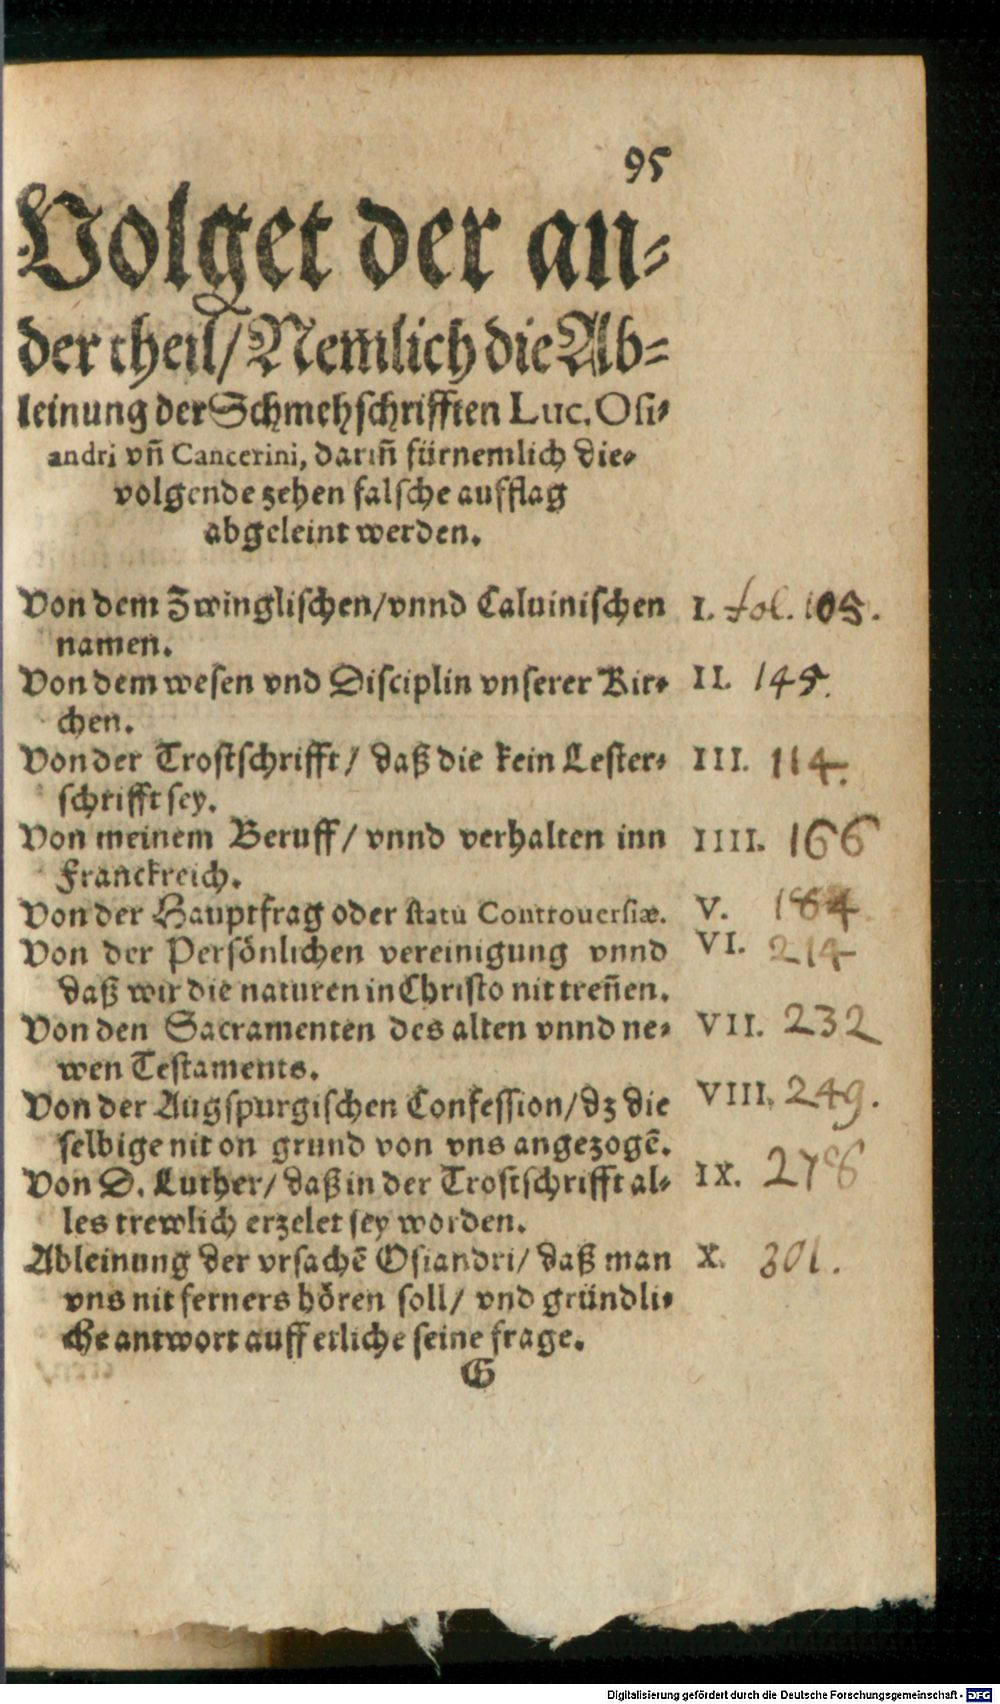 95
Volget der an-
der theil/ Nemlich die Ab-
leinung der Schmehschrifften Luc. Osi-
andri vñ Cancerini, darıñ fürnemlich die-
volgende zehen falsche aufflag
abgeleint werden.
Von dem Zwinglischen/ vnnd Caluinischen I. fol. 105.
namen.
Von dem wesen vnd Disciplin vnserer Kir- II. 145.
chen.
Von der Trostschrifft/ daß die kein Lester- III. 114.
schrifft sey.
Von meinem Beruff/ vnnd verhalten inn IIII. 166
Franckreich.
Von der Hauptfrag oder statu Controuersiæ. V. 184
Von der Persönlichen vereinigung vnnd VI. 214
daß wir die naturen in Christo nit treñen.
Von den Sacramenten des alten vnnd ne- VII. 232
wen Testaments.
Von der Augspurgischen Confession/ dz die VIII. 249.
selbige nit on grund von vns angezogē.
Von D. Luther/ daß in der Trostschrifft al- IX. 278
les trewlich erzelet sey worden.
Ableinung der vrsachē Osiandri/ daß man X. 301.
vns nit ferners hören soll/ vnd gründli-
che antwort auff etliche seine frage.
G
Digitalisierung gefördert durch die Deutsche Forschungsgemeinschaft - DFG